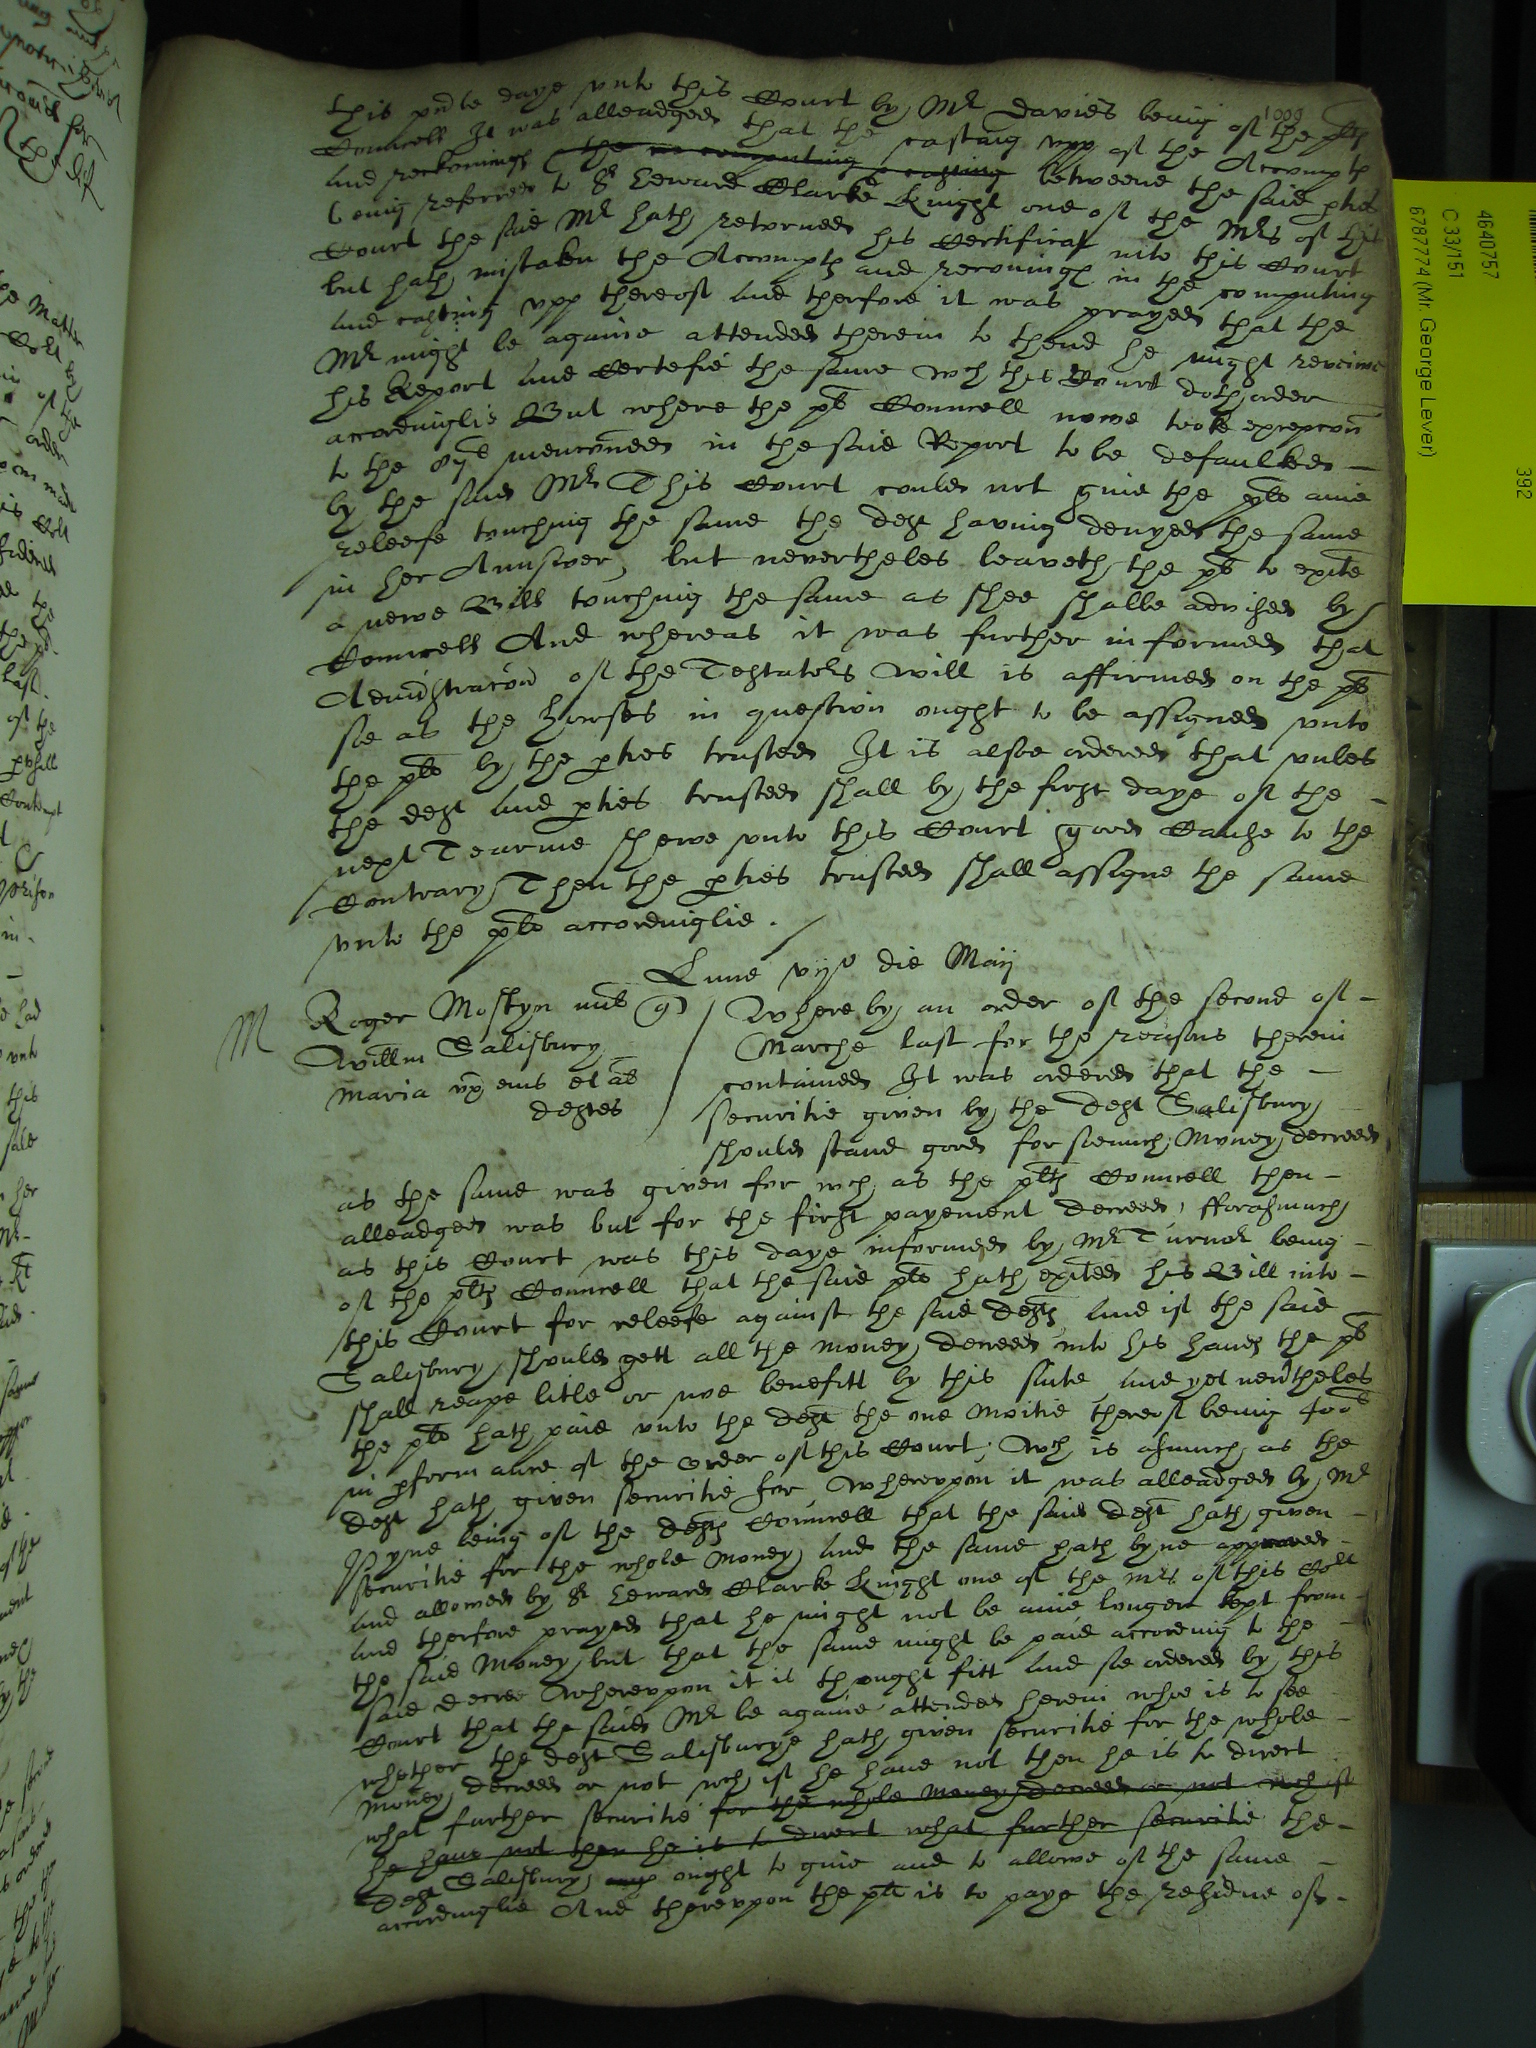 1009
this pnte daye vnto this Court by Mr Davies being of the plts
Councell It was alleadged that the casting vpp of the Accompts
and reckonings the computing casting betweene the said pties
being referred to Sr Edward Clarke Knight one of the Mrs of this
Court the said Mr hath returned his Certificat into this Court
but hath mistaken the Accompts and reconings in the computing
and casting vpp thereof and therfore it was prayed that the
Mr might be againe attended therein to thend he might
his Report and Certefie the same wch this Court doth order
accordinglie But where the plt Councell nowe tooke excepcon
to the menconed in the said Report to be defaulked
by the said Mr This Court could not giue the plt anie
releefe touching the same the deft having denyed the same
in her Aunswer, but nevertheles leaveth the plt to exite
a newe Bill touching the same as shee shalbe advised by
Councell And whereas it was further informed that
Administracon of the Testators will is affirmed on the plt
soe as the horses in question ought to be assigned vnto
the plt by the pties trusted It is alsoe ordered that vnles
the deft and pties trusted shall by the first daye of the
next Tearme shewe vnto this Court good Cause to the
Contrary Then the pties trusted shall assigne the same
vnto the plt accordinglie.
Lune vijo die Maij
M
Roger Mostyn mil q
Willm Salisbury
Maria vx eius et al
deftes
Whereby an order of the second of
Marche last for the reasons therein
contained It was ordered that the
securitie given by the deft Salisbury
should stand good for soemuch Money decreed
as the same was given for wch as the plts Councell then
alleadged was but for the first payement decreed, fforasmuch
as this Court was this daye informed by Mr Turnor being
of the plts Councell that the said plt hath exited his Bill into
this Court for releefe against the said defts and if the said
Salisbury should gett all the money decreed into his hands the plt
shall reape litle or noe benefitt by this suite and yet neūtheles
the plt hath paid vnto the deft the one Moitie thereof being 400l
in pformance of the order of this Court, Wch is asmuch as the
deft hath given securitie for Wherevpon it was alleadged by Mr
Pyne being of the defts Councell that the said deft hath given
securitie for the whole money and the same hath byne approved
and allowed by Sr Edward Clarke Knight one of the Mrs of this Cort
and therfore prayed that he might not be anie longer kept from
the said Money but that the same might be paid according to the
said decree Wherevpon it is thought fitt and soe ordered by this
Court that the said Mr be againe attended herein whoe is to see
whether the deft Salisburye hath given securitie for the whole
Money decreed or not wch if he haue not then he is to direct
what further securitie for the whole Money decreed or not wch if
he haue not then he is to direct what further securitie the
deft Salisbury ought to giue and to allowe of the same
accordinglie And therevpon the plt is to paye the residue of
4640757
C 33/151
6787774 (Mr. George Lever)
392